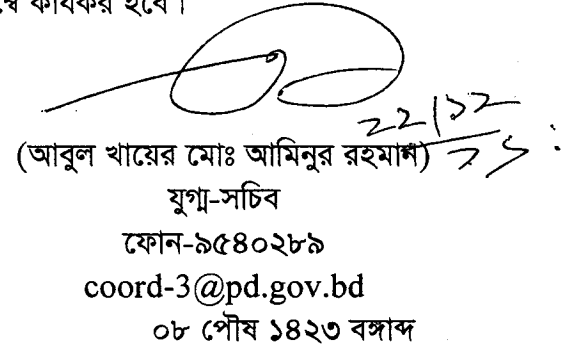 কার্যকর হবে।
২২/১২
(আবুল খায়ের মোঃ আমিনুর রহমান)
যুগ্ম-সচিব
ফোন-৯৫৪০২৮৯
coord-3@pd.gov.bd
০৮ পৌষ ১৪২৩ বঙ্গাব্দ